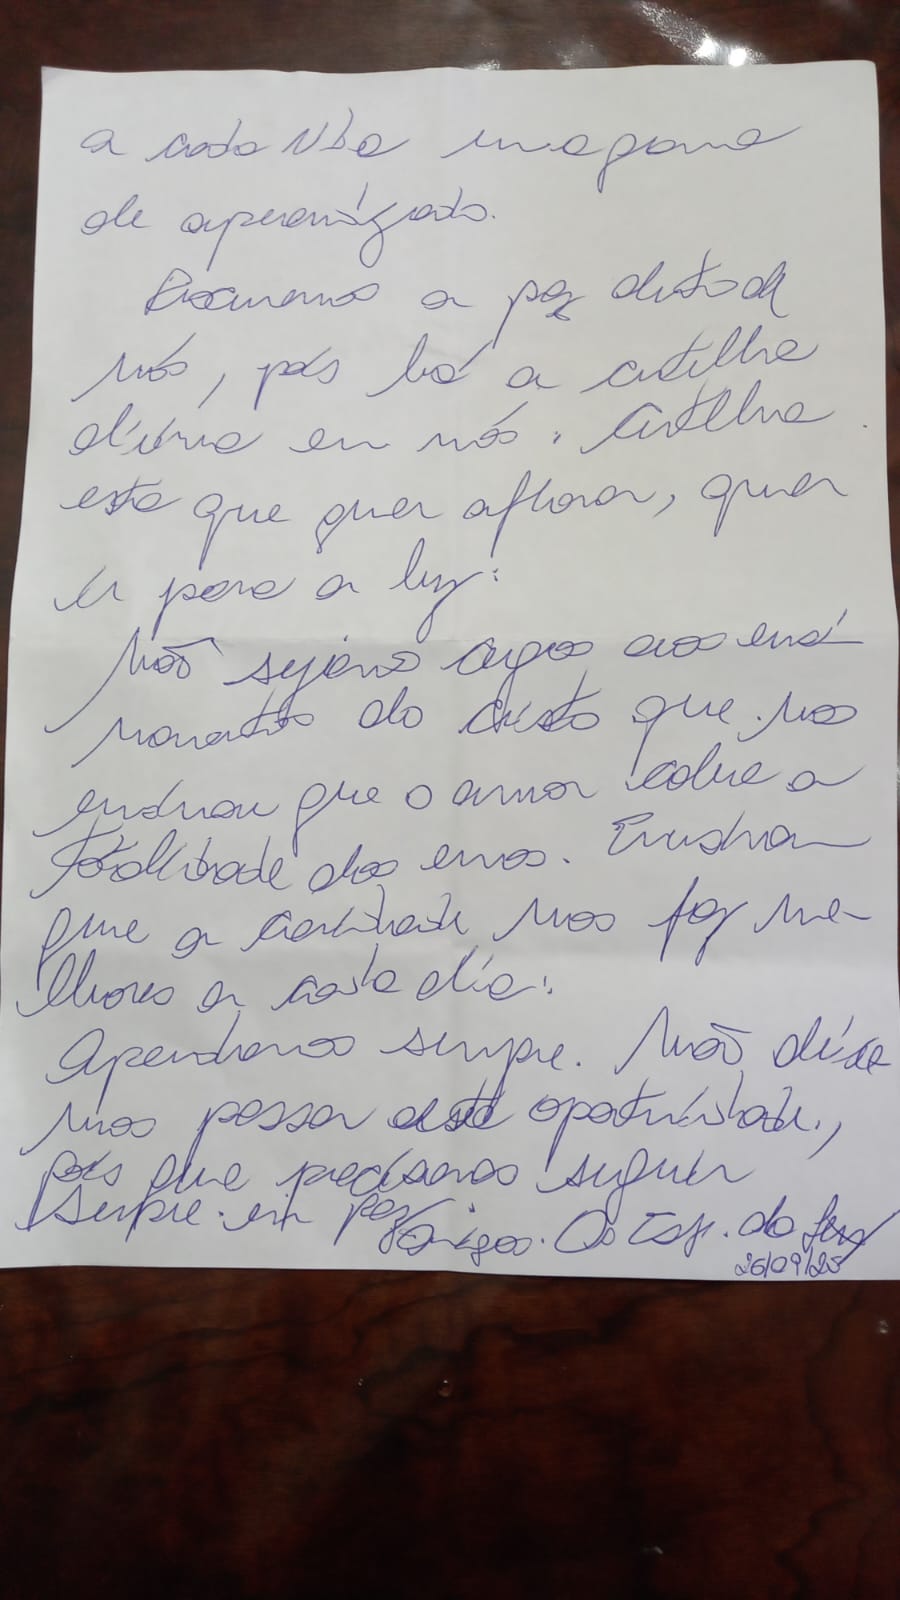 a cada
de aprendizado.
a paz dentro de
nós, pois há a centelha
divina em nós. Centelha
esta que quer aflorar, quer
ir para a luz.
Não sejamos cegos aos ensi
namentos do Cristo que nos
ensinou que o amor cobre a
totalidade dos erros. Ensinou
que a caridade nos faz me-
lhores a cada dia.
Aprendamos sempre. Não deixe
mos passar esta oportunidade,
pois que precisamos seguir
sempre em paz
Amigos. Os Esp. do
26/09/25